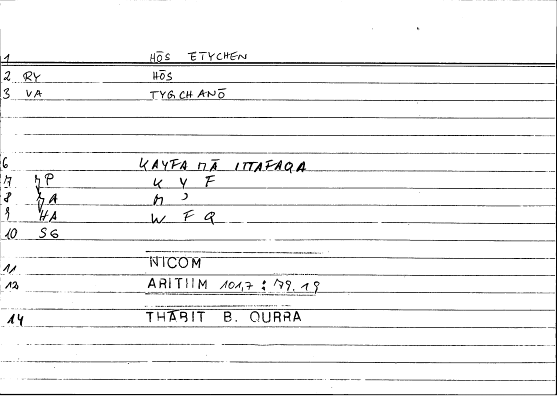 1 HŌS ETYCHEN
2 RY HŌS
3 VA TYGCHANŌ
6 KAYFA MĀ ITTAFAQA
7 P K Y F
8 A M ʾ
9 HA W F Q
10 SG
11 NICOM
12 ARITIIM 101,7 : 79.19
14 THĀBIT B. QURRA